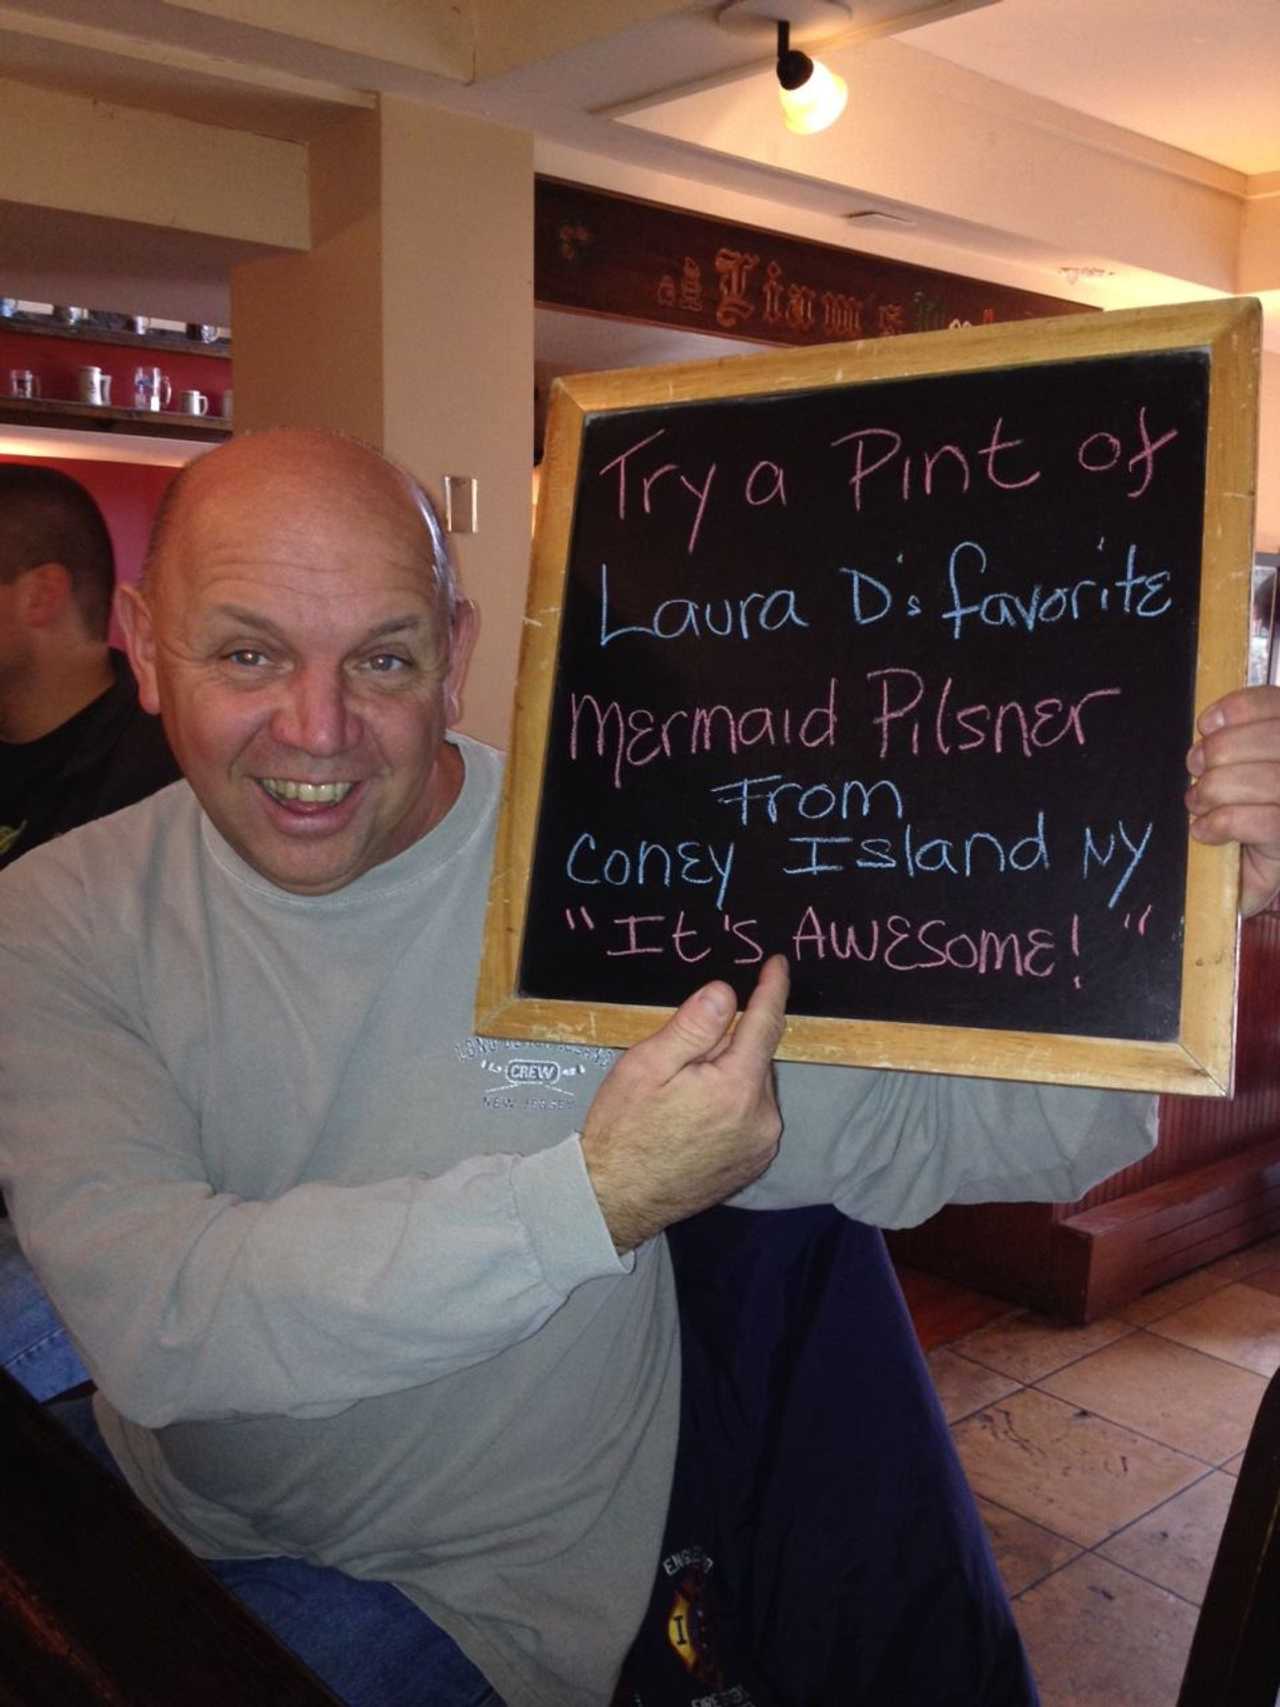 Liam's
Try a Pint of
Laura D's favorite
Mermaid Pilsner
From
Coney Island NY
"It's Awesome!"
CREW
NEW JERSEY
I